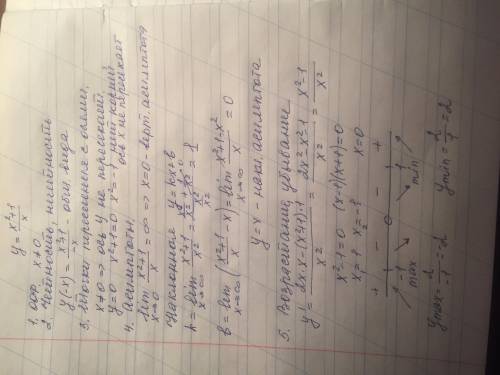 y = x²+1 / x
1. ООФ. x≠0
2. Чётность, нечётность
y(-x) = x²+1 / -x - общ. вида
3. Точки пересечения с осями.
x≠0 => ось y не пересекает
y=0 x²+1=0 x²=-1 нет корней
ось x не пересекает
4. Асимптоты.
lim x→0 x²+1 / x = ∞ => x=0 - верт. асимптота
Наклонная y=kx+b
k = lim x→∞ x²+1 / x² = x²/x² + 1/x² / x²/x² = 1
b = lim x→∞ (x²+1 / x - x) = lim x→∞ x²+1-x² / x = 0
y=x - накл. асимптота
5. Возрастание, убывание
y' = 2x·x-(x²+1)·1 / x² = 2x²-x²-1 / x² = x²-1 / x²
x²-1=0 (x-1)(x+1)=0
x=1 x=-1 x=0
+ - - +
-1 0 1
max min
ymax = 2 / -1 = -2 ymin = 2 / 1 = 2